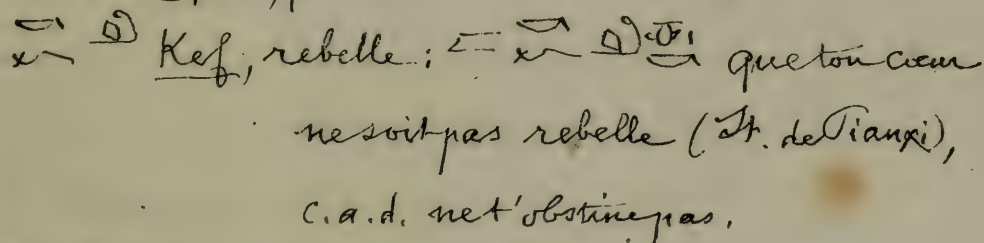 Kef, rebelle; que ton cœur
ne soit pas rebelle (St. de Pianxi),
c.a.d. ne t'obstine pas.